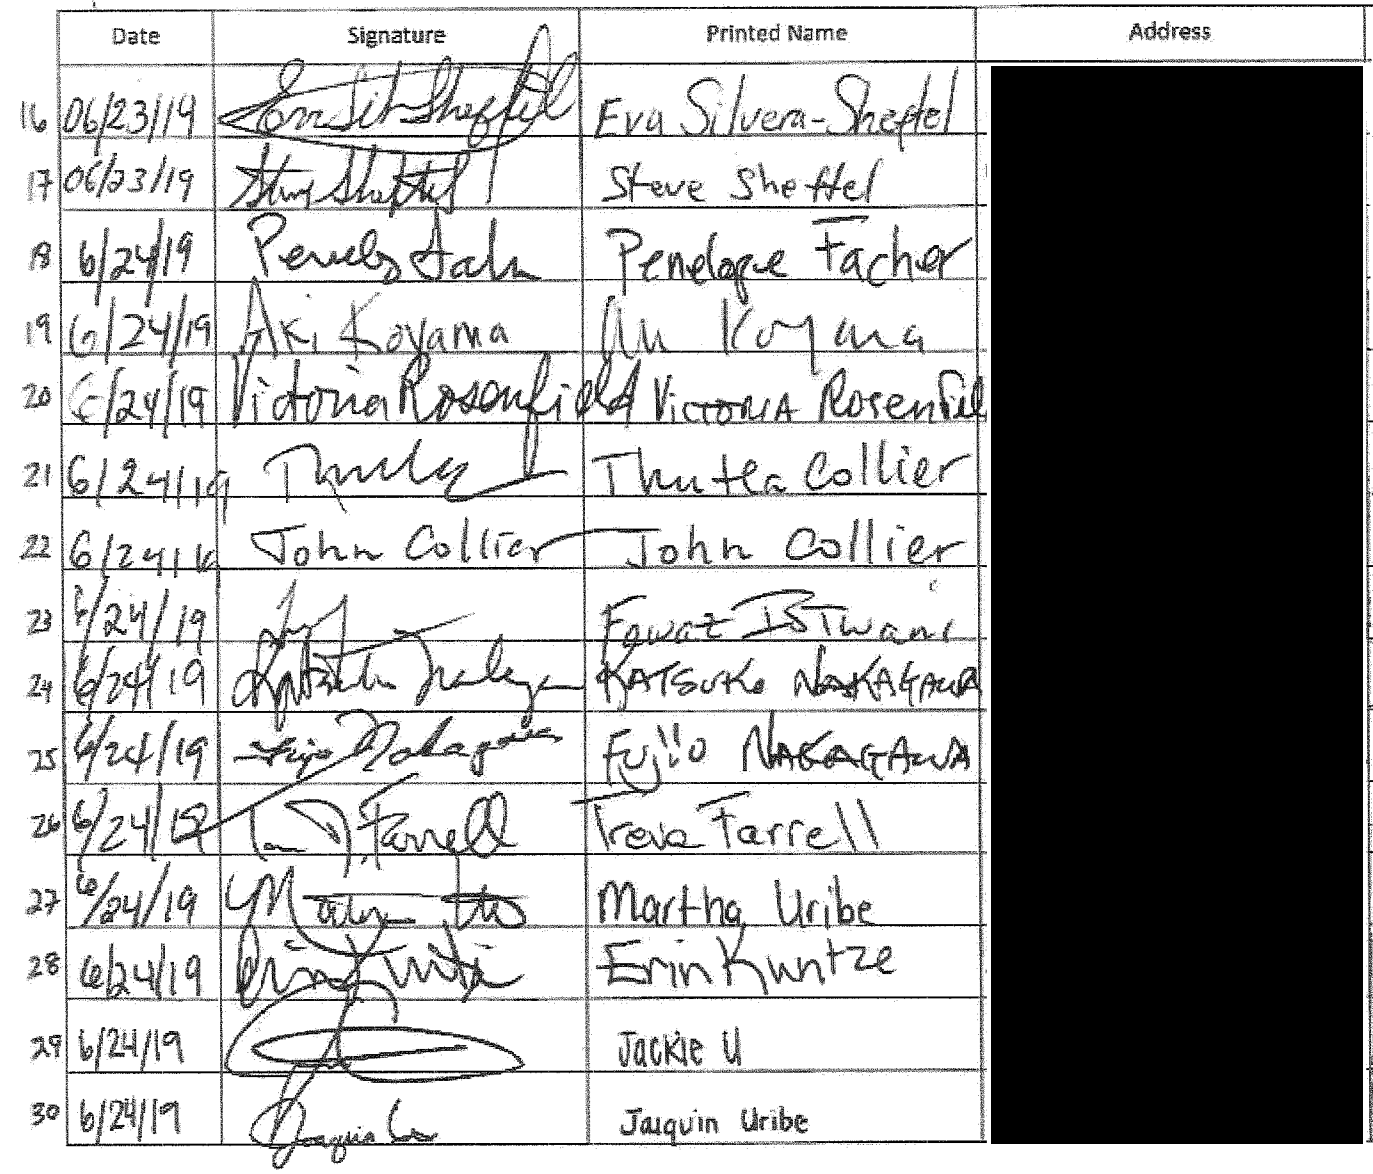 Date Signature Printed Name Address
16 06/23/19 Eva Silvera-Sheftel
17 06/23/19 Steve Sheftel
18 6/24/19 Penelope Facher
19 6/24/19 Aki Koyama Aki Koyama
20 6/24/19 Victoria Rosenfield Victoria Rosenfiel
21 6/24/19 Collier
22 6/24/19 John Collier John Collier
23 6/24/19 Fawaz ISTwani
24 6/24/19 KATSUKO NAKAGAWA
25 6/24/19 Fujio Nakagawa Fujio NAKAGAWA
26 6/24/19 J. Farrell Treva Farrell
27 6/24/19 Martha Uribe
28 6/24/19 Erin Kuntze Erin Kuntze
29 6/24/19 Jackie U
30 6/24/19 Uribe